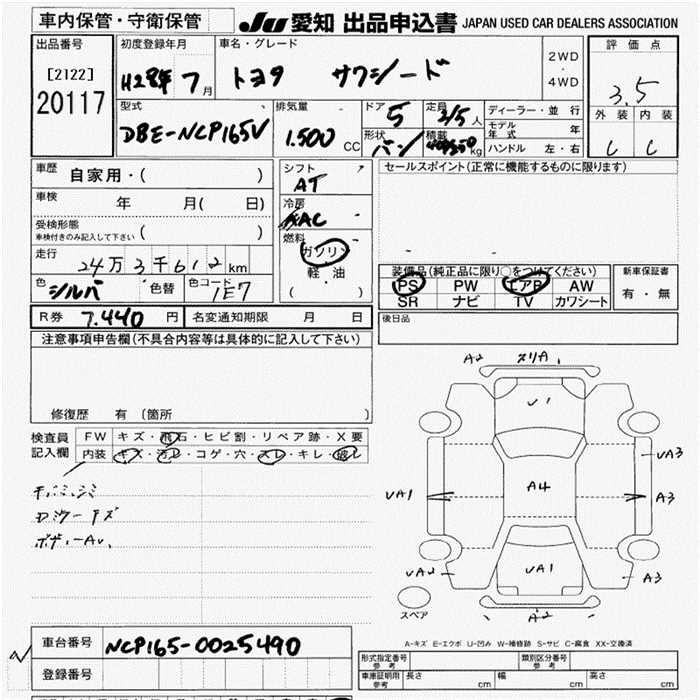 車内保管・守衛保管
JU 愛知 出品申込書 JAPAN USED CAR DEALERS ASSOCIATION
出品番号
[2122]
20117
初度登録年月
H28年 7月
車名・グレード
トヨタ サクシード
2WD
・
4WD
評価点
3.5
外装 内装
C C
型式
DBE-NCP165V
排気量
1.500 CC
ドア
5
形状
バン
定員
2/5人
積載
kg
ディーラー・並行
モデル年式 年
ハンドル 左・右
車歴
自家用・( )
車検
年 月( 日)
受検形態
車検付きのみ記入して下さい ( )
走行
24万3千612km
色
シルバ
色替
色コード
1E7
シフト
AT
冷房
AAC
燃料
ガソリン
軽・油
( )
セールスポイント(正常に機能するものに限ります)
装備品(純正品に限り○をつけてください)
PS PW エアB AW
SR ナビ TV カワシート
新車保証書
有・無
後日品
R券 7.440 円
名変通知期限 月 日
注意事項申告欄(不具合内容等は具体的に記入して下さい)
修復歴 有 〔箇所 〕
検査員記入欄
FW キズ・飛石・ヒビ割・リペア跡・X要
内装 キズ・汚レ・コゲ・穴・スレ・キレ・破レ
ボディーAU、
A2 スリA
U1
UA3
UA1
A4
A3
UA1
UA2
A3
スペア
A2
A-キズ E-エクボ U-凹み W-補修跡 S-サビ C-腐食 XX-交換済
車台番号 NCP165-0025490
登録番号
形式指定番号
参考
類別区分番号
参考
車庫証明用
参考
長さ cm 幅 cm 高さ cm